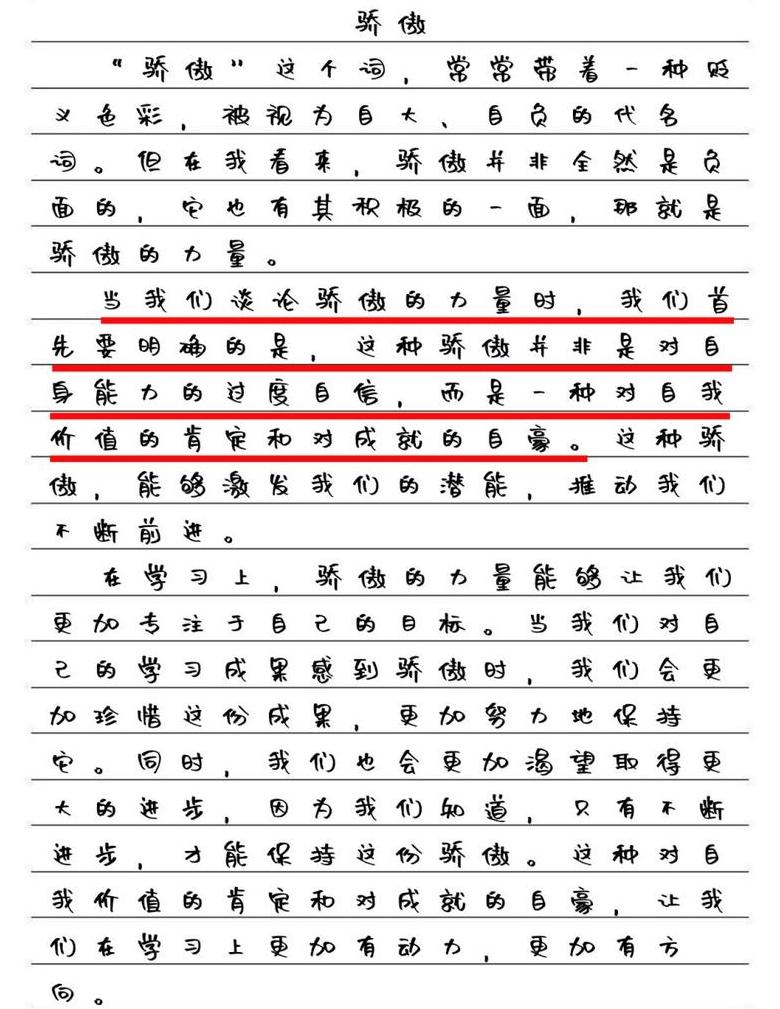 骄傲
“骄傲”这个词，常常带着一种贬
义色彩，被视为自大、自负的代名
词。但在我看来，骄傲并非全然是负
面的，它也有其积极的一面，那就是
骄傲的力量。
当我们谈论骄傲的力量时，我们首
先要明确的是，这种骄傲并非是对自
身能力的过度自信，而是一种对自我
价值的肯定和对成就的自豪。这种骄
傲，能够激发我们的潜能，推动我们
不断前进。
在学习上，骄傲的力量能够让我们
更加专注于自己的目标。当我们对自
己的学习成果感到骄傲时，我们会更
加珍惜这份成果，更加努力地保持
它。同时，我们也会更加渴望取得更
大的进步，因为我们知道，只有不断
进步，才能保持这份骄傲。这种对自
我价值的肯定和对成就的自豪，让我
们在学习上更加有动力，更加有方
向。